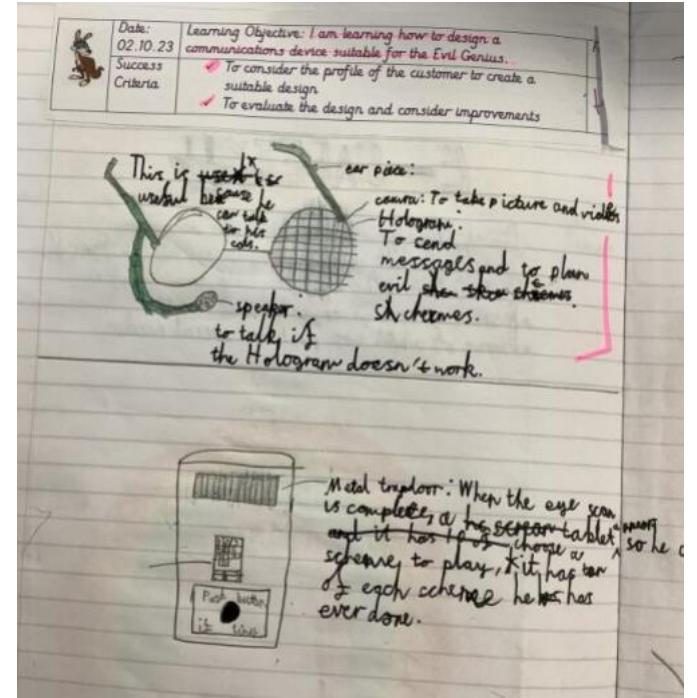 Date:
02.10.23
Learning Objective: I am learning how to design a
communications device suitable for the Evil Genius.
Success
Criteria
To consider the profile of the customer to create a
suitable design
To evaluate the design and consider improvements
This is
useful because he
can talk
to his
ear piece:
camera: To take picture and videos
Hologram:
To send
messages and to plan
evil
shchexmes.
speaker:
to talk if
the Hologram doesn't work.
Metal trapdoor: When the eye scan
is complete, a tablet
and it has choose a so he
scheme to play, it has
of each scheme he has
ever done.
Push button
if